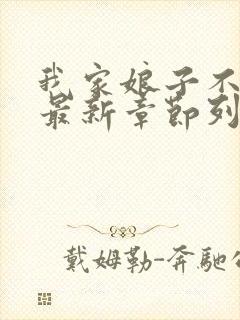 我家娘子不
最新章節列
戴姆勒-奔馳公